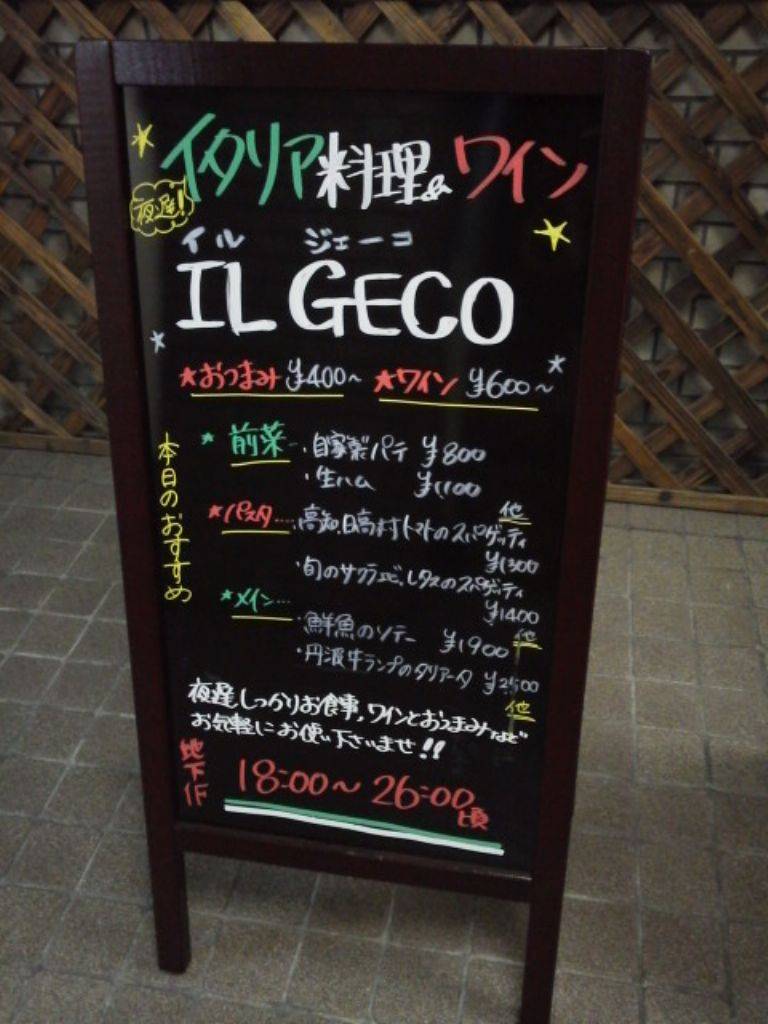 イタリア料理&ワイン
夜遅!
イル ジェーコ
IL GECO
★おつまみ ¥400~ ★ワイン ¥600~
本日のおすすめ
★前菜…・自家製パテ ¥800
・生ハム ¥1100
他
★パスタ…・高知、日高村トマトのスパゲッティ
¥1300
・旬のサクラエビ、レタスのスパゲッティ
¥1400
他
★メイン…
・鮮魚のソテー ¥1900
・丹波牛ランプのタリアータ ¥2500
他
夜遅、しっかりお食事、ワインとおつまみなど
お気軽にお使い下さいませ!!
地下1F
18:00~26:00頃